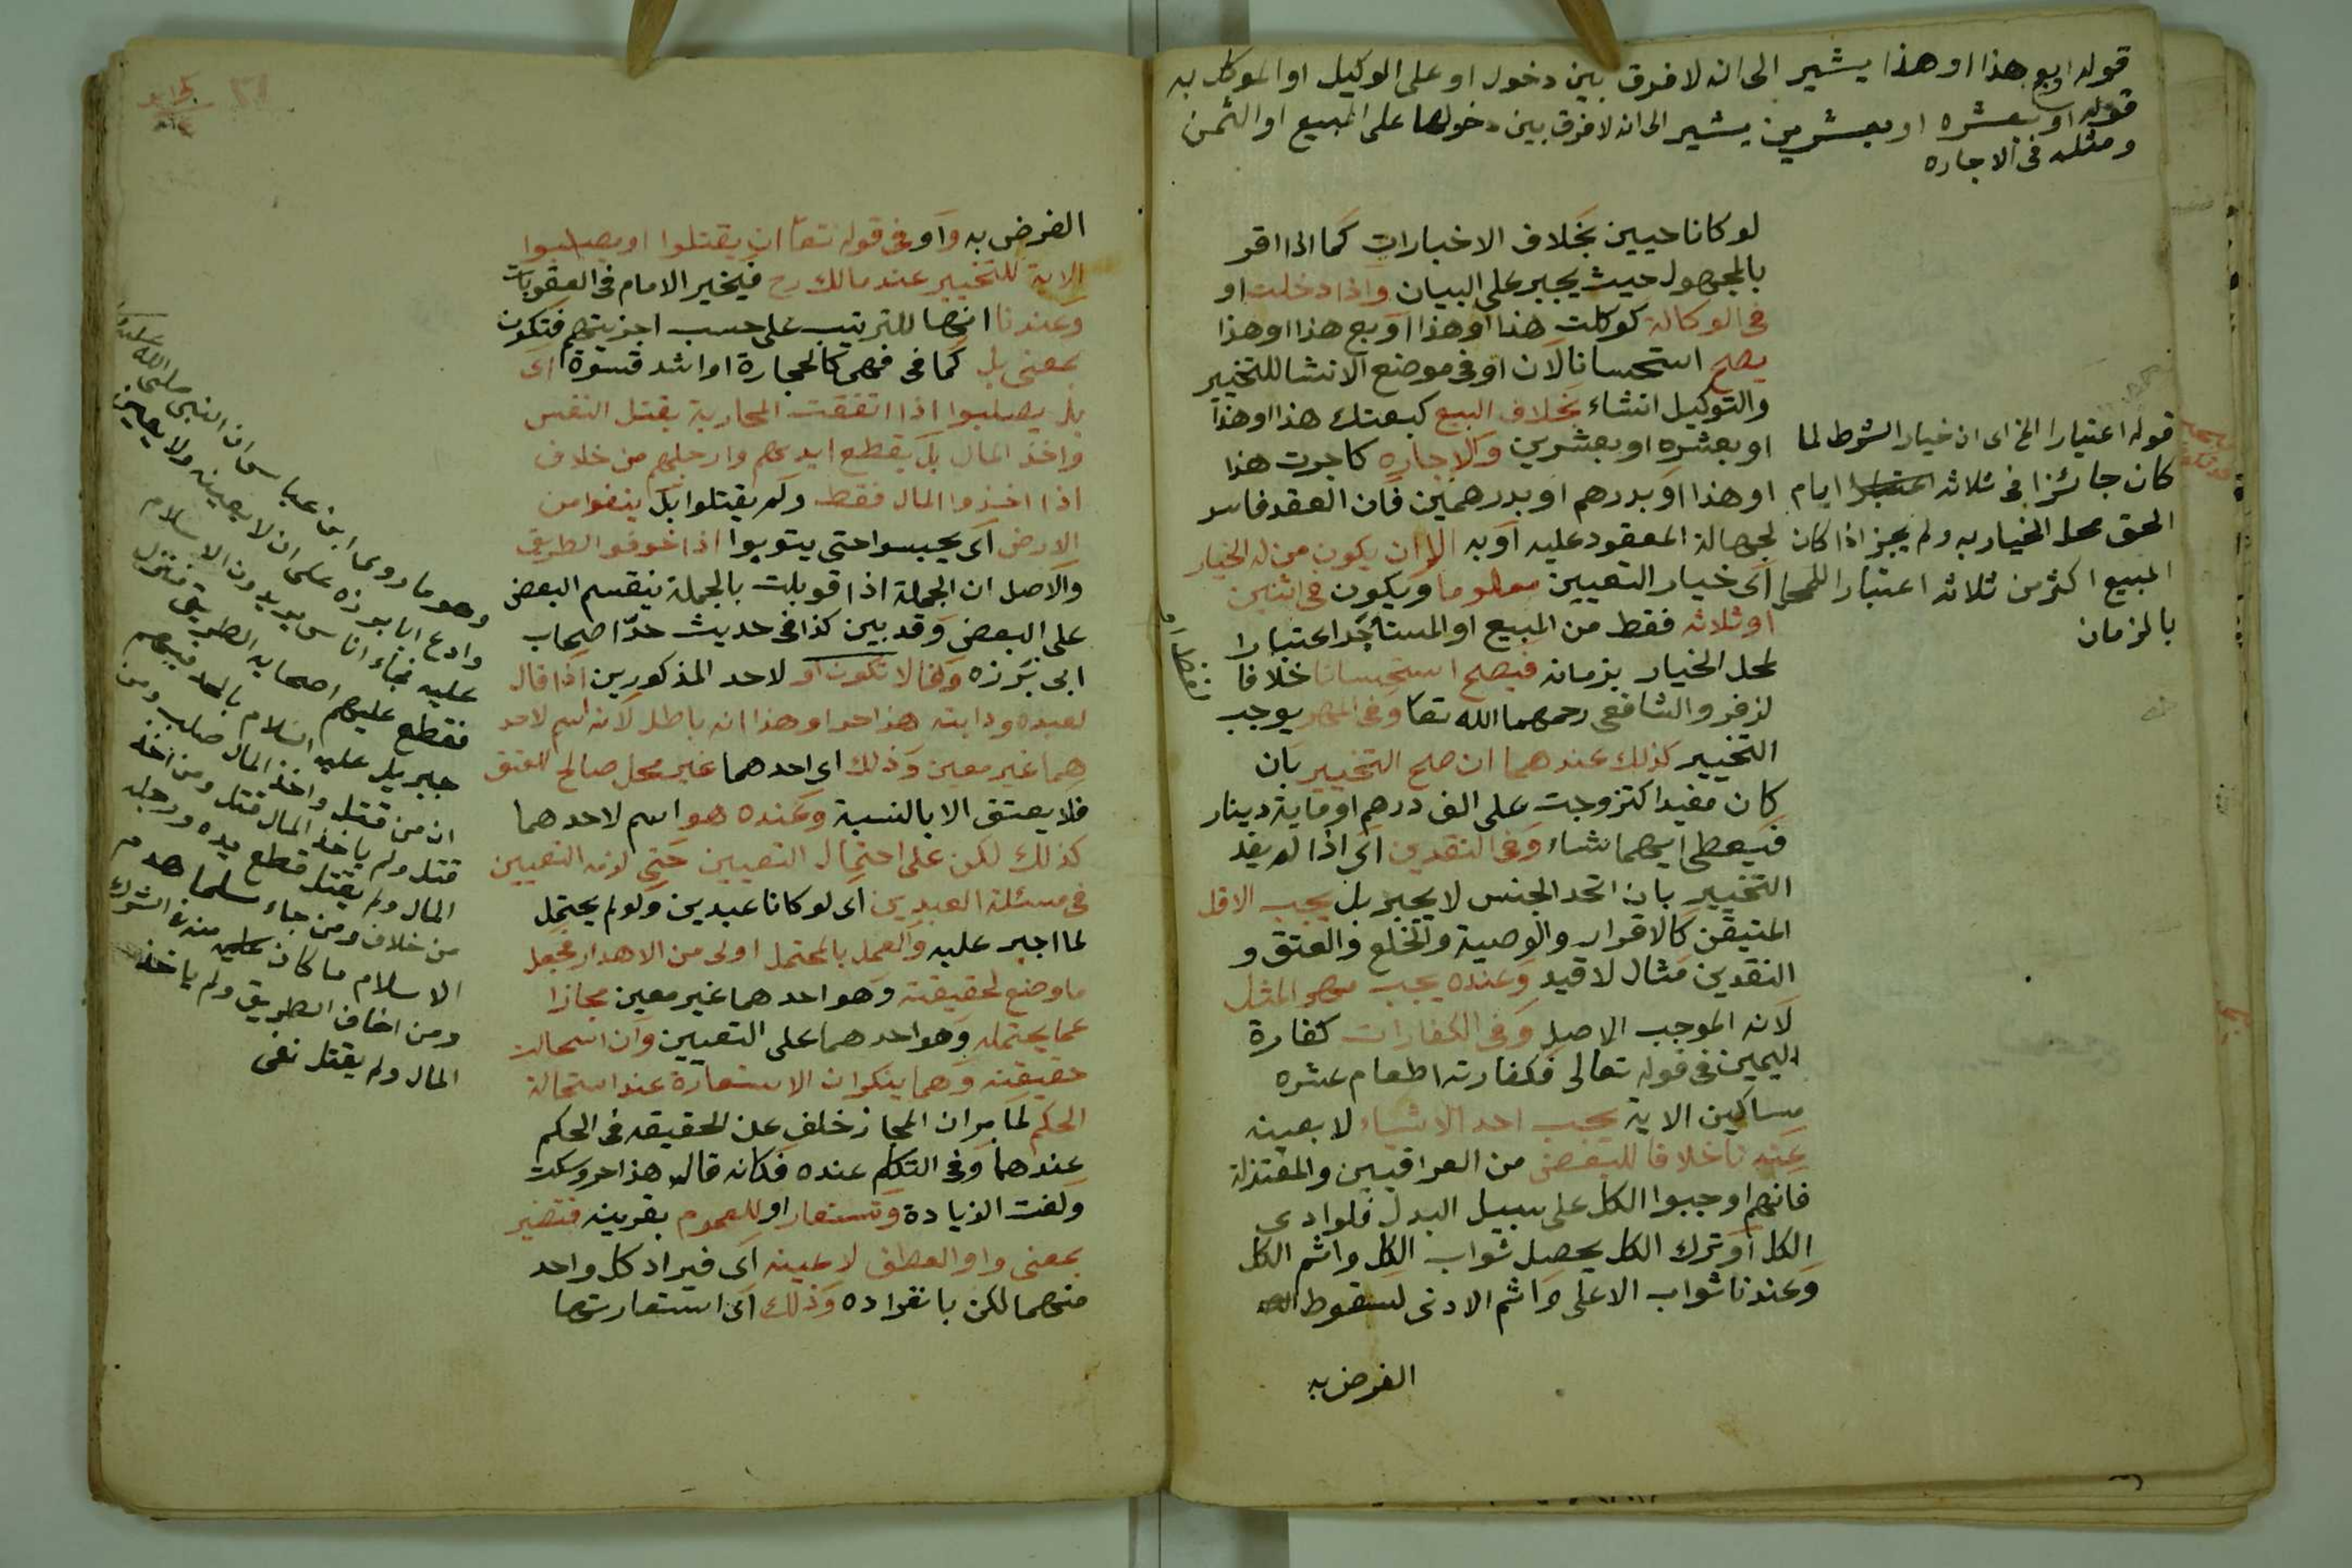 قوله او بع هذا او هذا يشير الى انه لا فرق بين دخول او على الوكيل او الموكل به
قوله او بعشره او بعشرين يشير الى انه لا فرق بين دخولها على المبيع او الثمن
ومثله فى الاجاره
لو كانا حيين بخلاف الاخبارات كما اذا اقر
بالمجهول حيث يجبر على البيان واذا دخلت او
فى الوكالة كوكلت هذا او هذا او بع هذا او هذا
يصح استحسانا لان او فى موضع الانشا للتخيير
والتوكيل انشاء بخلاف البيع كبعتك هذا او هذا
او بعشره او بعشرين والاجاره كاجرت هذا
او هذا او بدرهم او بدرهمين فان العقد فاسد
لجهالة المعقود عليه او به الا ان يكون من له الخيار
اى خيار التعيين معلوما ويكون فى اثنين
او ثلاثه فقط من المبيع او المستأجر اعتبارا
لمحل الخيار بزمانه فيصح استحسانا خلافا
لزفر والشافعى رحمهما الله تعا وفى المهر يوجب
التخيير كذلك عندهما ان صح التخيير بان
كان مفيدا كتزوجت على الف درهم او ماية دينار
فيعطى ايهما شاء وفى النقدين اى اذا لم يفد
التخيير بان اتحد الجنس لا يجبر بل يجب الاقل
المتيقن كالاقرار والوصية والخلع والعتق و
النقدين مثال لا قيد وعنده يجب مهر المثل
لانه الموجب الاصل وفى الكفارات كفارة
اليمين فى قوله تعالى فكفارته اطعام عشره
مساكين الاية يجب احد الاشياء لا بعينه
عندنا خلافا للبعض من العراقيين والمعتزلة
فانهم اوجبوا الكل على سبيل البدل فلو ادى
الكل او ترك الكل يحصل ثواب الكل واثم الكل
وعندنا ثواب الاعلى واثم الادنى لسقوط
الفرض به
قوله اعتبارا الخ اى ان خيار الشرط لما
كان جائزا فى ثلاثه ايام
الحق محل الخيار به ولم يجز اذا كان
المبيع اكثر من ثلاثه اعتبارا للمحل
بالزمان
الفرض به واو فى قوله تعا ان يقتلوا او يصلبوا
الاية للتخيير عند مالك رح فيخير الامام فى العقوبات
وعندنا انها للترتيب على حسب اجزيتهم فتكون
بمعنى بل كما فى فهى كالحجارة او اشد قسوة اى
بل يصلبوا اذا اتفقت المحاربة بقتل النفس
واخذ المال بل يقطع ايديهم وارجلهم من خلاف
اذا اخذوا المال فقط ولم يقتلوا بل ينفوا من
الارض اى يحبسوا حتى يتوبوا اذا خوفوا الطريق
والاصل ان الجملة اذا قوبلت بالجملة ينقسم البعض
على البعض وقد بين كذا فى حديث حدّ اصحاب
ابى برزه وقالا تكون او لاحد المذكورين اذا قال
لعبده ودابته هذا حر او هذا انه باطل لانه اسم لاحد
هما غير معين وذلك اى احدهما غير محل صالح للعتق
فلا يعتق الا بالنسبة وعنده هو اسم لاحدهما
كذلك لكن على احتمال التعيين حتى لزمه التعيين
فى مسئلة العبدين اى لو كانا عبدين ولو لم يحتمل
لما اجبر عليه والعمل بالمحتمل اولى من الاهدار فجعل
ما وضع لحقيقته وهو احدهما غير معين مجازا
عما يحتمله وهو احدهما على التعيين وان استحالت
حقيقته وهما ينكران الاستعارة عند استحالة
الحكم لما مر ان المجاز خلف عن الحقيقه فى الحكم
عندهما وفى التكلم عنده فكانه قال هذا حر وسكت
ولغت الزيادة وتستعار او للعموم بقرينه فتصير
بمعنى واو العطف لا عينه اى فيراد كل واحد
منهما لكن بانفراده وذلك اى استعارتها
وهو ما روى ابن عباس ان النبى صلى الله عليه
وادع ابا برزه على ان لا يعينه ولا يعين
عليه فجاء اناس يريدون الاسلام
فقطع عليهم اصحابه الطريق فنزل
جبريل عليه السلام بالحد فيهم
ان من قتل واخذ المال صلب ومن
قتل ولم ياخذ المال قتل ومن اخذ
المال ولم يقتل قطع يده ورجله
من خلاف ومن جاء مسلما هدم
الاسلام ما كان منه فى الشرك
ومن اخاف الطريق ولم ياخذ
المال ولم يقتل نفى